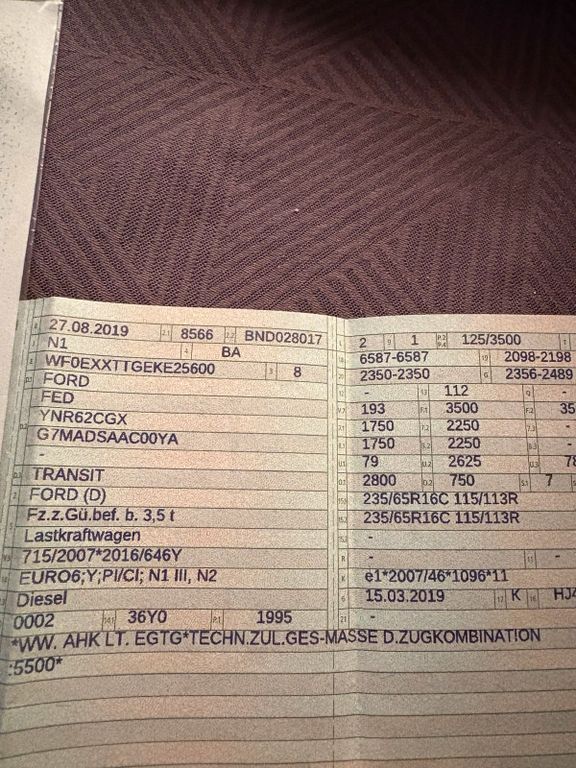 27.08.2019 2.1 8566 2.2 BND028017
N1 BA
WF0EXXTTGEKE25600 3 8
FORD
FED
YNR62CGX
G7MADSAAC00YA
-
TRANSIT
FORD (D)
Fz.z.Gü.bef. b. 3,5 t
Lastkraftwagen
715/2007*2016/646Y
EURO6;Y;PI/CI; N1 III, N2
Diesel
0002 14.1 36Y0 P.1 1995
*WW. AHK LT. EGTG*TECHN.ZUL.GES-MASSE D.ZUGKOMBINATION
:5500*
L 2 9 1 P.2 P.4 125/3500 T
18 6587-6587 19 2098-2198
20 2350-2350 G 2356-2489
12 - 13 112 Q -
V.7 193 F.1 3500 F.2 35
7.1 1750 7.2 2250 7.3 -
8.1 1750 8.2 2250 8.3 -
U.1 79 U.2 2625 U.3 78
O.1 2800 O.2 750 S.1 7
15.1 235/65R16C 115/113R
15.2 235/65R16C 115/113R
15.3 -
R - 11 -
K e1*2007/46*1096*11
6 15.03.2019 17 K 16 HJ4
21 -